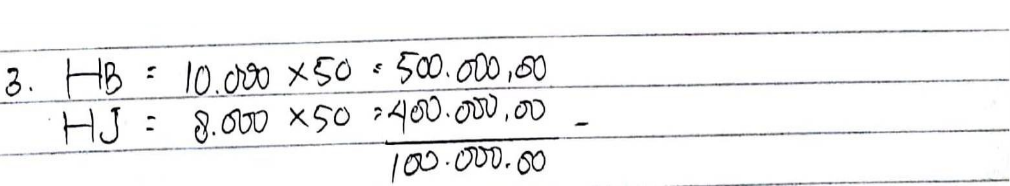 3. HB = 10.000 × 50 = 500.000,00
HJ = 8.000 × 50 = 400.000,00 -
100.000.00